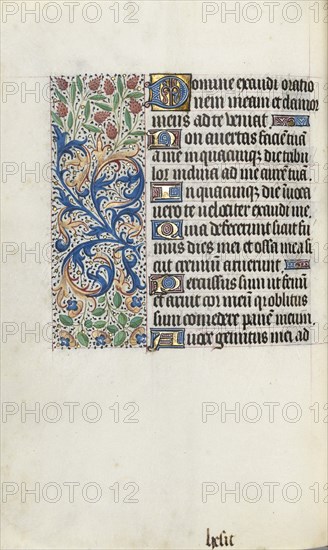 Domine exaudi oratio
nem meam et clamor
meus ad te veniat.
Non avertas faciē tuā
a me in quacunque die tribu
lor inclina ad me aurē tuā.
In quacunque die īvoca
vero te velociter exaudi me.
Quia defecerunt sicut fu
mus dies mei et ossa mea si
cut cremiū aruerunt
Percussus sum ut fenū
et aruit cor meū q oblitus
sum comedere panē meum.
A voce gemitus mei ad
PHOTO 12